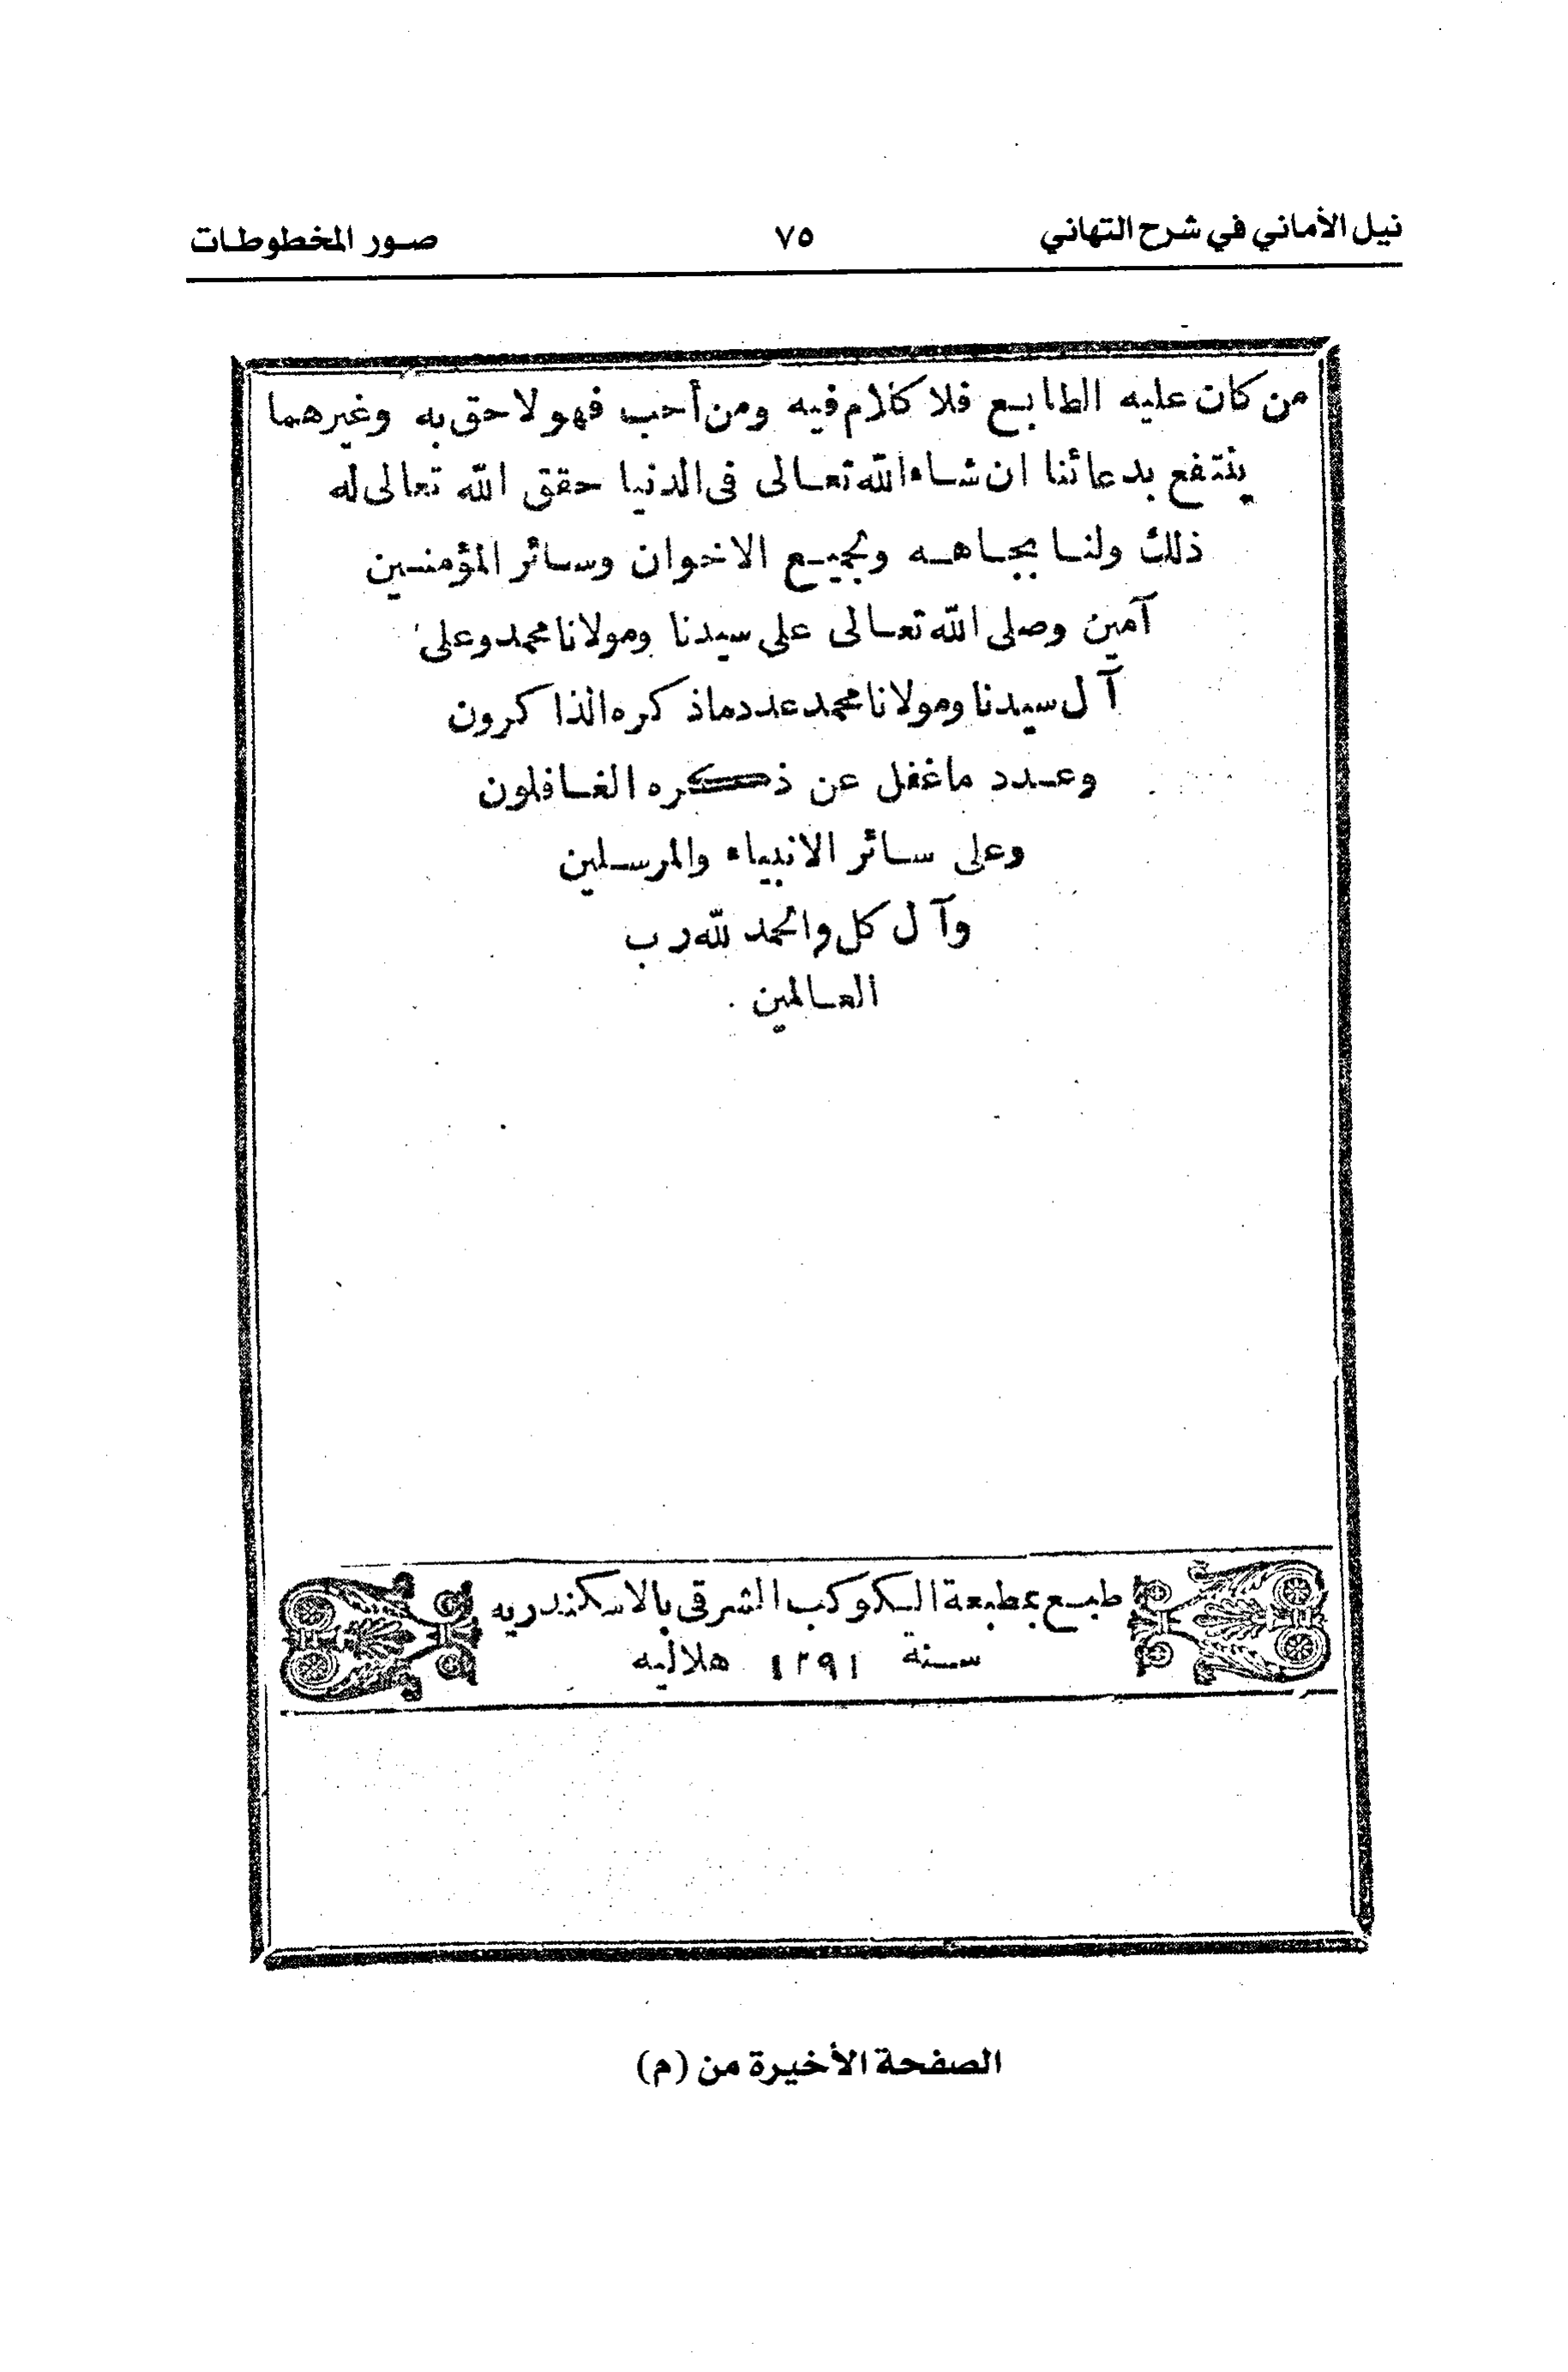 نيل الأماني في شرح التهاني ٧٥ صور المخطوطات
من كان عليه الطابع فلا كلام فيه ومن أحب فهو لاحق به وغيرهما
ينتفع بدعائنا ان شاء الله تعالى فى الدنيا حقق الله تعالى له
ذلك ولنا بجاهه ولجميع الاخوان وسائر المؤمنين
آمين وصلى الله تعالى على سيدنا ومولانا محمد وعلى
آل سيدنا ومولانا محمد عدد ماذكره الذاكرون
وعدد ماغفل عن ذكره الغافلون
وعلى سائر الانبياء والمرسلين
وآل كل والحمد لله رب
العالمين .
طبع بمطبعة الكوكب الشرقى بالاسكندريه
سنة ١٢٩١ هلاليه
الصفحة الأخيرة من (م)